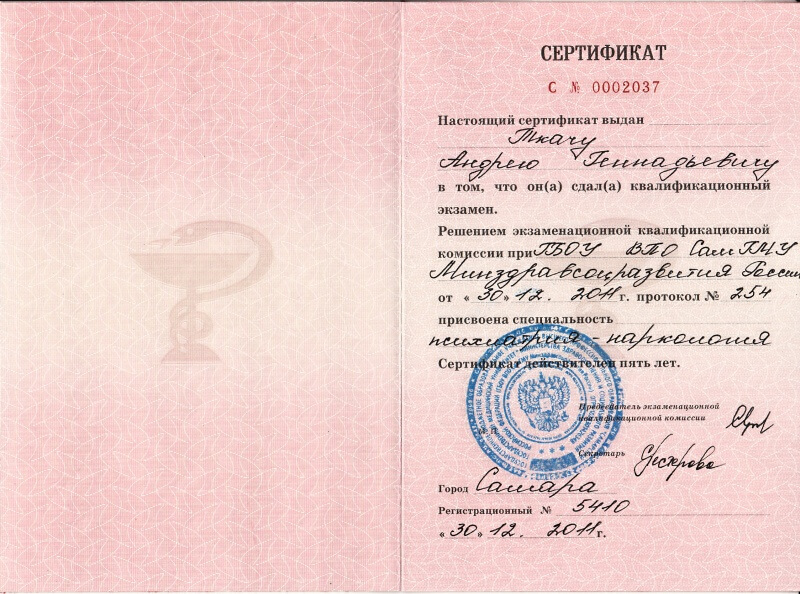 СЕРТИФИКАТ
С № 0002037
Настоящий сертификат выдан
Ткачу
Андрею Геннадьевичу
в том, что он(а) сдал(а) квалификационный
экзамен.
Решением экзаменационной квалификационной
комиссии при ГБОУ ВПО СамГМУ
Минздравсоцразвития России
от «30» 12. 2011 г. протокол № 254
присвоена специальность
психиатрия - наркология
Сертификат действителен пять лет.
Председатель экзаменационной
квалификационной комиссии
Секретарь
Город Самара
Регистрационный № 5410
«30» 12. 2011 г.